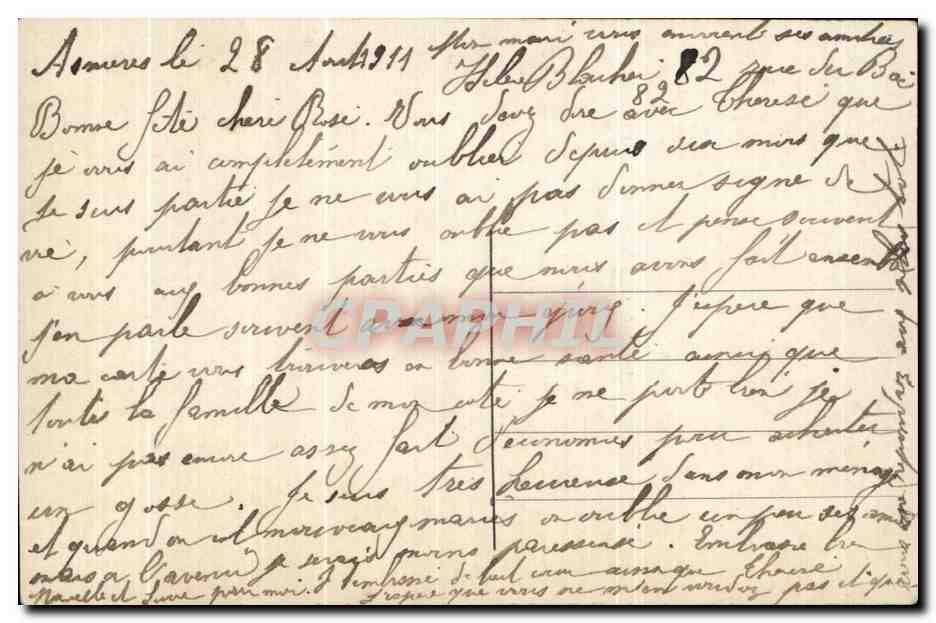 Asnieres le 28 Aout 1911 Mon mari vous envoient ses amities
82 rue du Bac
Bonne fete cherè Rose. Vous devez dire avec Therese que
82
je vous ai completement oublier depuis six mois que
je suis partie je ne vous ai pas donner signe de
vie, pourtant je ne vous oublie pas et pense souvent
a vous aux bonnes parties que nous avons fait ensemble
j'en parle souvent a mon. J'espere que
ma carte vous trouveras en bonne santé ainsi que
toute la famille de mon coté je me porte bien je
n'ai pas encore assez fait d'économies pour acheter
un gosse. Je suis très heureuse dans mon ménage
et quand on est nouveaux mariés on oublie un peu ses amis
mais a l'avenir je serais moins paresseuse. Embrasse bien
pour moi. J'embrasse de tout coeur ainsi que Therese
J'espere que vous ne m'en voudrez pas et que
CPAPHIL